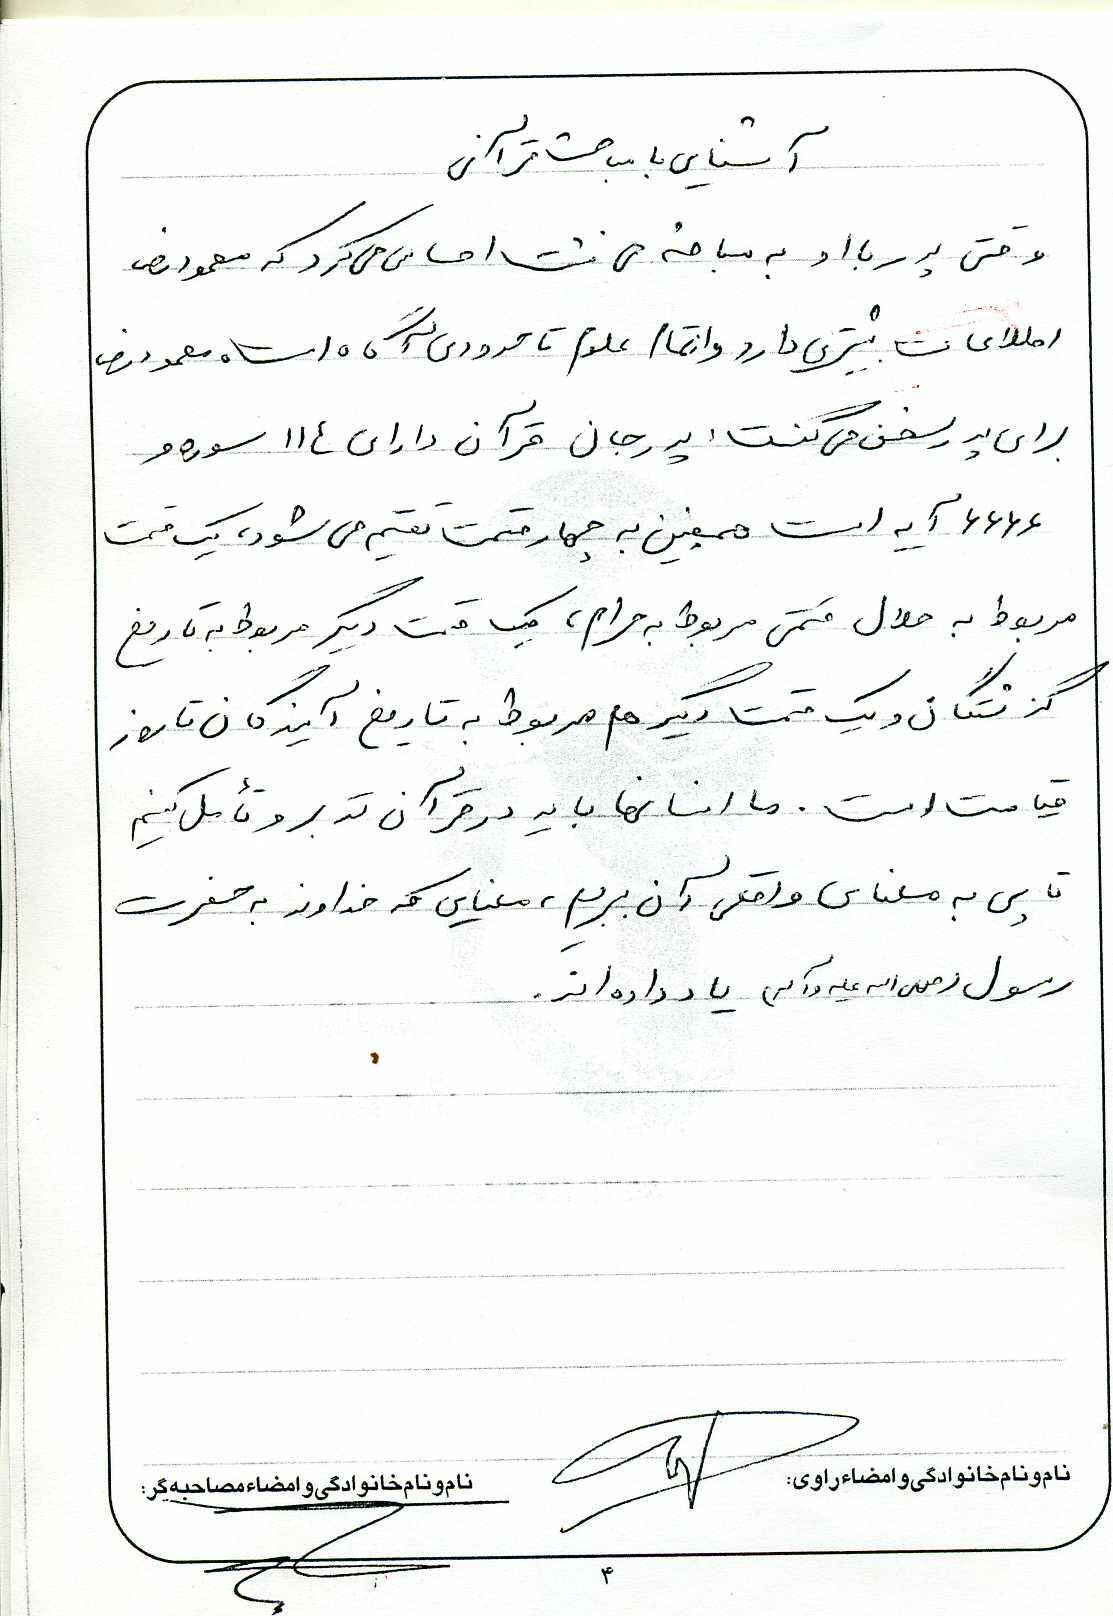 آشنایی با مباحث قرآنی
وقتی پدر با او به مباحثه می نشست احساس می کرد که محمودرضا
اطلاعات بیشتری دارد و از تمام علوم تا حدودی آگاه است محمودرضا
برای پدر سخن می گفت: پدر جان قرآن دارای ۱۱٤ سوره و
۶۶۶۶ آیه است همچنین به چهار قسمت تقسیم می شود، یک قسمت
مربوط به حلال قسمتی مربوط به حرام، یک قسمت دیگر مربوط به تاریخ
گذشتگان و یک قسمت دیگر هم مربوط به تاریخ آیندگان تا روز
قیامت است. ما انسانها باید در قرآن تدبر و تأمل کنیم
تا پی به معنای واقعی آن ببریم، معنایی که خداوند به حضرت
رسول (صلی الله علیه و آله) یاد داده اند.
نام و نام خانوادگی و امضاء راوی:
نام و نام خانوادگی و امضاء مصاحبه گر:
۴